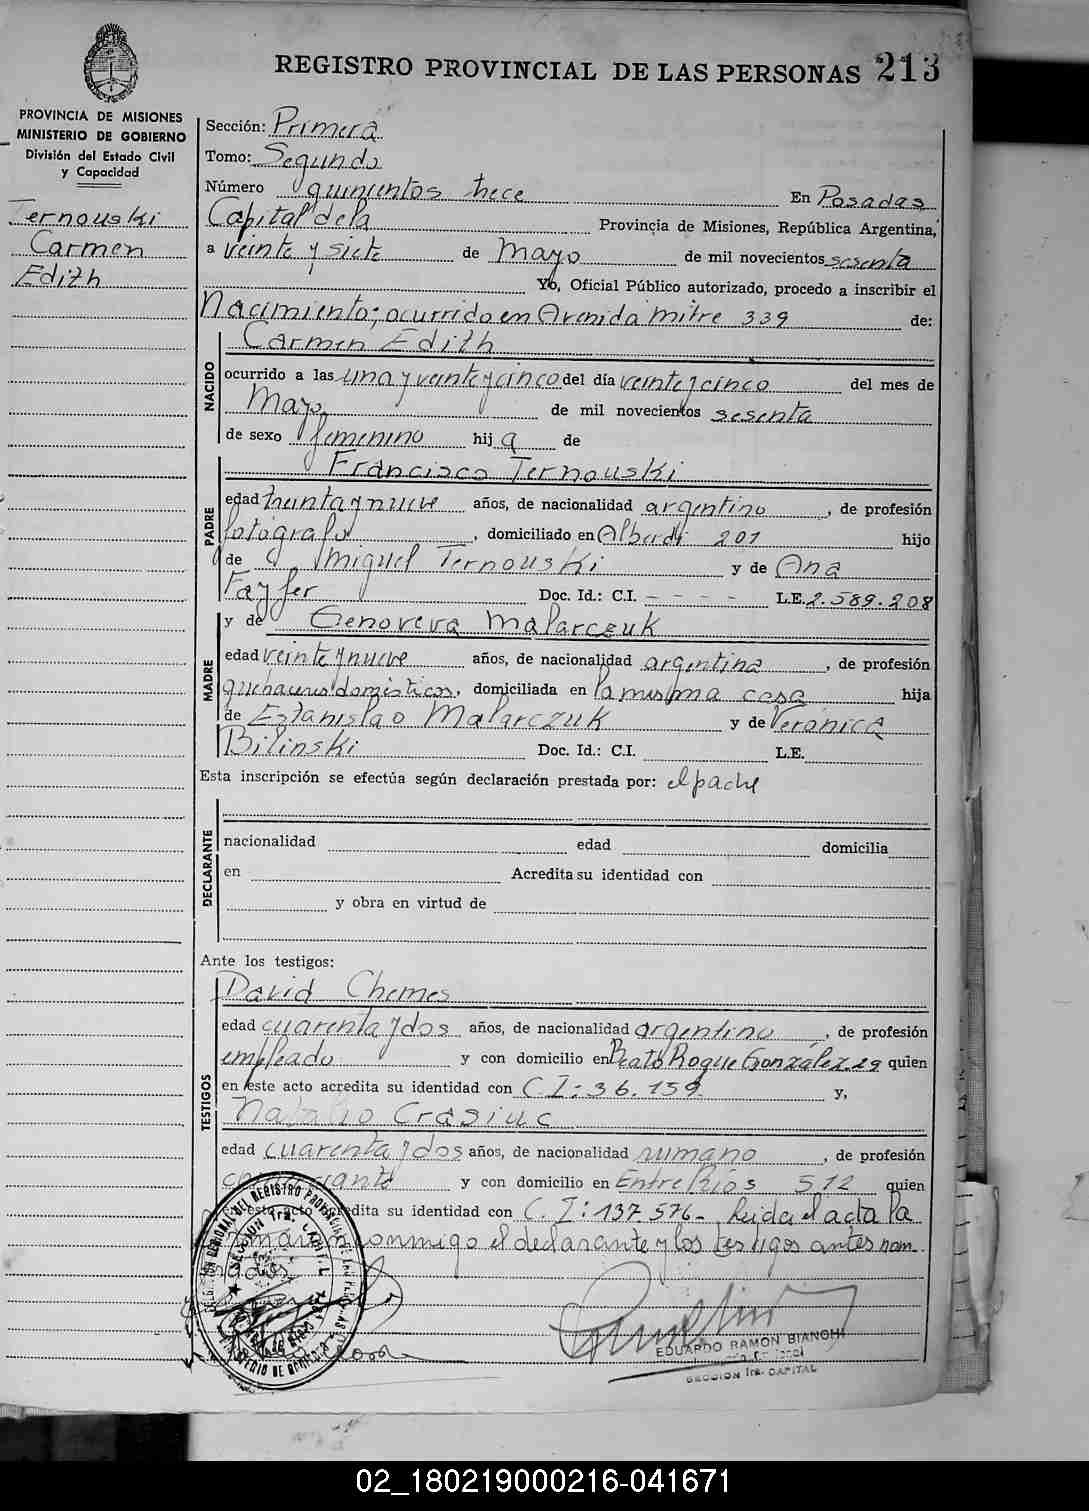 REGISTRO PROVINCIAL DE LAS PERSONAS 213
PROVINCIA DE MISIONES
MINISTERIO DE GOBIERNO
División del Estado Civil
y Capacidad
Ternouski
Carmen
Edith
Sección: Primera
Tomo: Segundo
Número quinientos trece En Posadas
Capital de la Provincia de Misiones, República Argentina,
a veinte y siete de Mayo de mil novecientos sesenta
Yo, Oficial Público autorizado, procedo a inscribir el
Nacimiento; ocurrido en Avenida Mitre 339 de:
NACIDO
Carmen Edith
ocurrido a las una y veinte y cinco del día veinte y cinco del mes de
Mayo de mil novecientos sesenta
de sexo femenino hija de
PADRE
Francisco Ternouski
edad treinta y nueve años, de nacionalidad argentino, de profesión
fotógrafo, domiciliado en Alberdi 201 hijo
de Miguel Ternouski y de Ana
Fayfer Doc. Id.: C.I. - - - - L.E. 2.589.208
MADRE
y de Genoveva Malarczuk
edad veinte y nueve años, de nacionalidad argentina, de profesión
quehaceres domésticos, domiciliada en la misma casa hija
de Estanislao Malarczuk y de Verónica
Bilinski Doc. Id.: C.I. L.E.
Esta inscripción se efectúa según declaración prestada por: el padre
DECLARANTE
nacionalidad edad domicilia
en Acredita su identidad con
y obra en virtud de
Ante los testigos:
TESTIGOS
David Chemes
edad cuarenta y dos años, de nacionalidad argentino, de profesión
empleado y con domicilio en Beato Roque González 29 quien
en este acto acredita su identidad con C.I: 36.159 y,
Natalio Crasiuc
edad cuarenta y dos años, de nacionalidad rumano, de profesión
y con domicilio en Entre Ríos 512 quien
en este acto acredita su identidad con C.I: 137.576- Leida el acta la
firman conmigo el declarante y los testigos antes nom
brados
EDUARDO RAMON BIANCHI
SECCION 1ra. CAPITAL
02_180219000216-041671